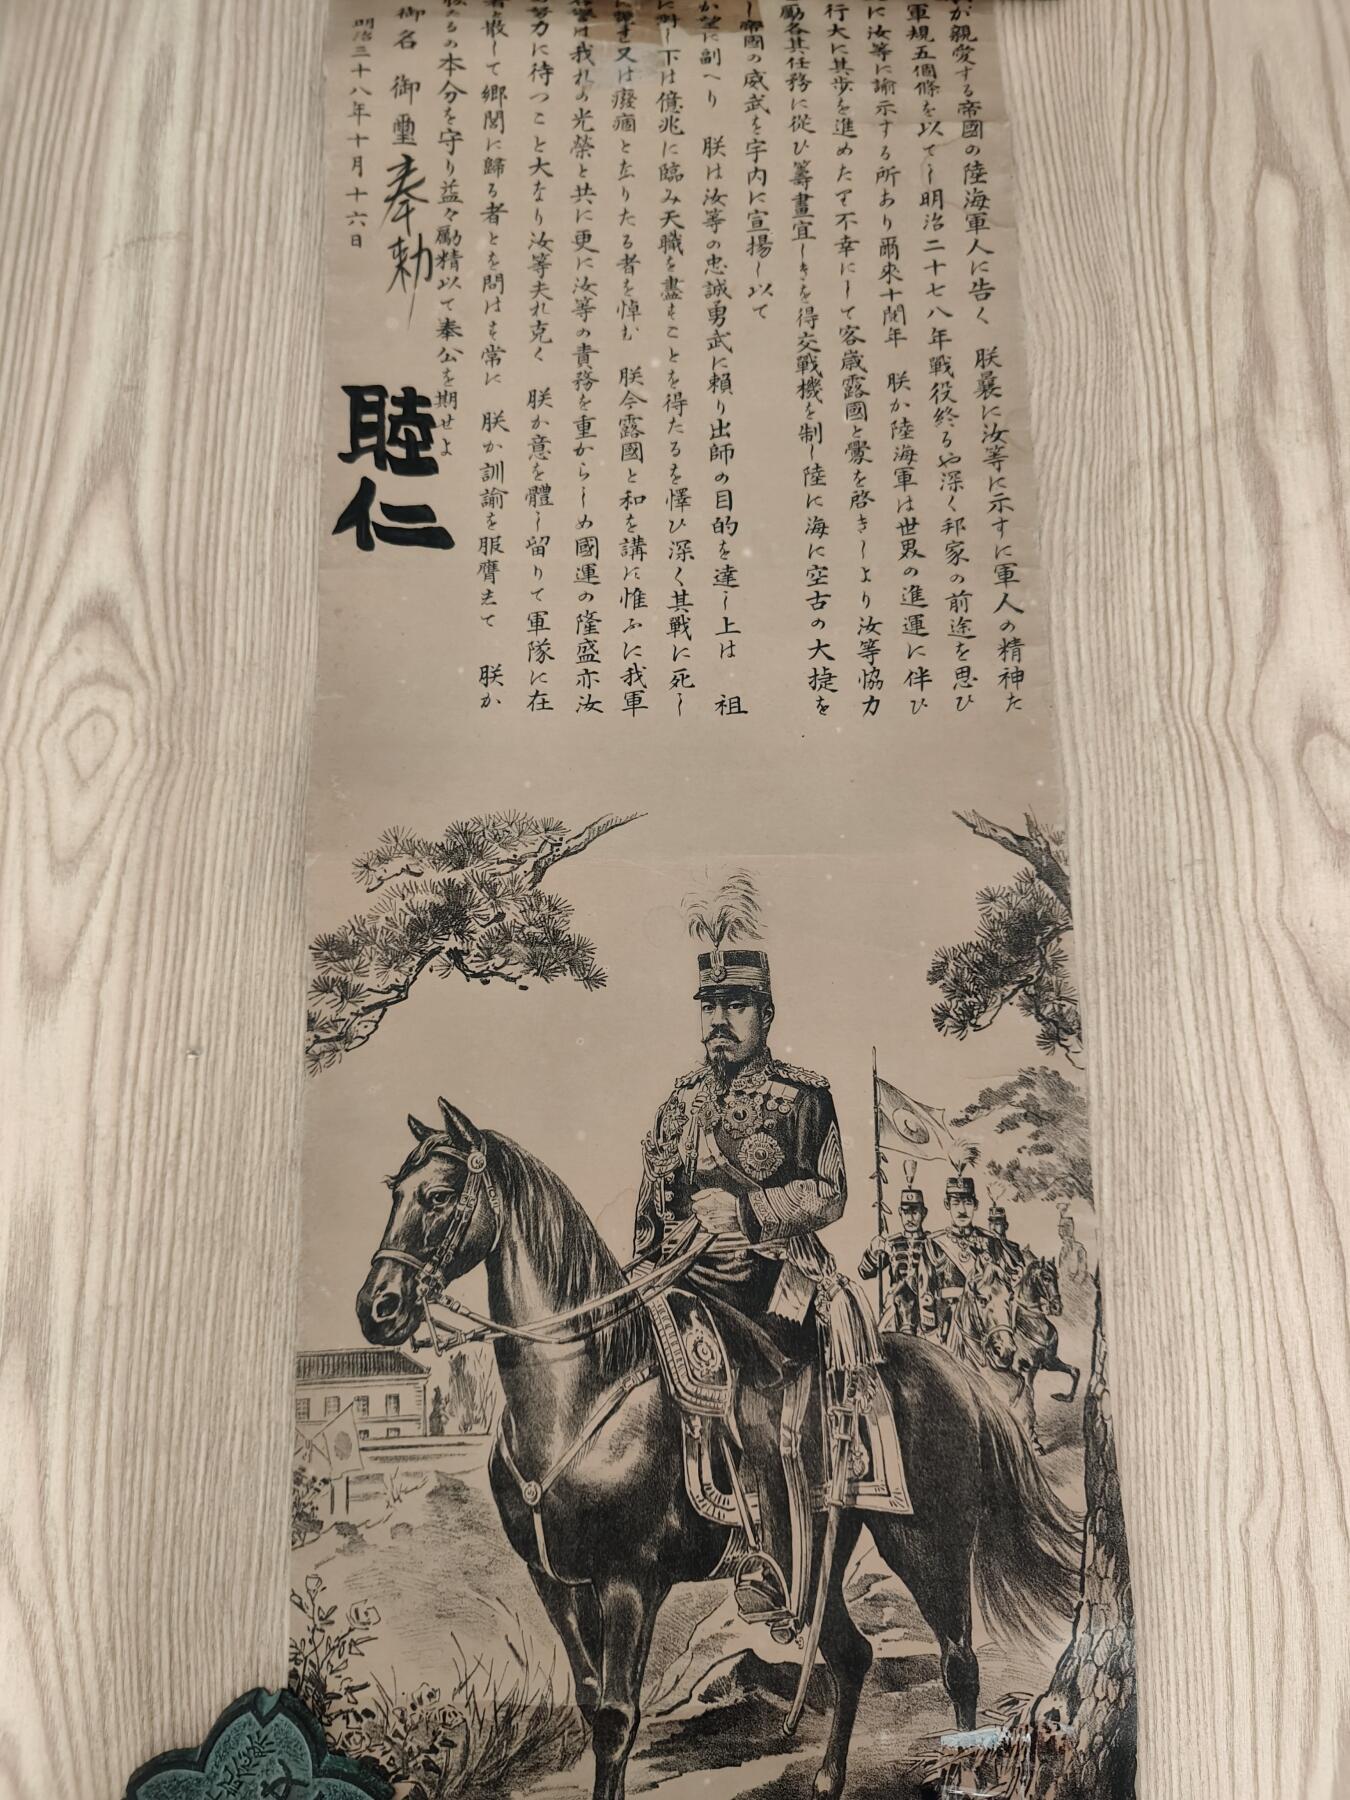 が親愛する帝國の陸海軍人に告く 朕曩に汝等に示すに軍人の精神た
軍規五個條を以てし明治二十七八年戰役終るや深く邦家の前途を思ひ
に汝等に諭示する所あり爾來十閱年 朕か陸海軍は世界の進運に伴ひ
行大に其步を進めたり不幸にして客歲露國と釁を啓きしより汝等協力
勵各其任務に從ひ籌畫宜しきを得交戰機を制し陸に海に空古の大捷を
し帝國の威武を宇内に宣揚し以て
か望に副へり 朕は汝等の忠誠勇武に賴り出師の目的を達し上は 祖
に對し下は億兆に臨み天職を盡すことを得たるを懌ひ深く其戰に死し
に斃す又は癈痼と爲りたる者を悼む 朕今露國と和を講に惟ふに我軍
は我れの光榮と共に更に汝等の責務を重からしめ國運の隆盛亦汝
努力に待つこと大なり汝等夫れ克く 朕か意を體し留りて軍隊に在
散して鄕閭に歸る者とを問はす常に 朕か訓諭を服膺して 朕か
たるの本分を守り益々勵精以て奉公を期せよ
御名 御璽 奉勅
明治三十八年十月十六日
睦仁